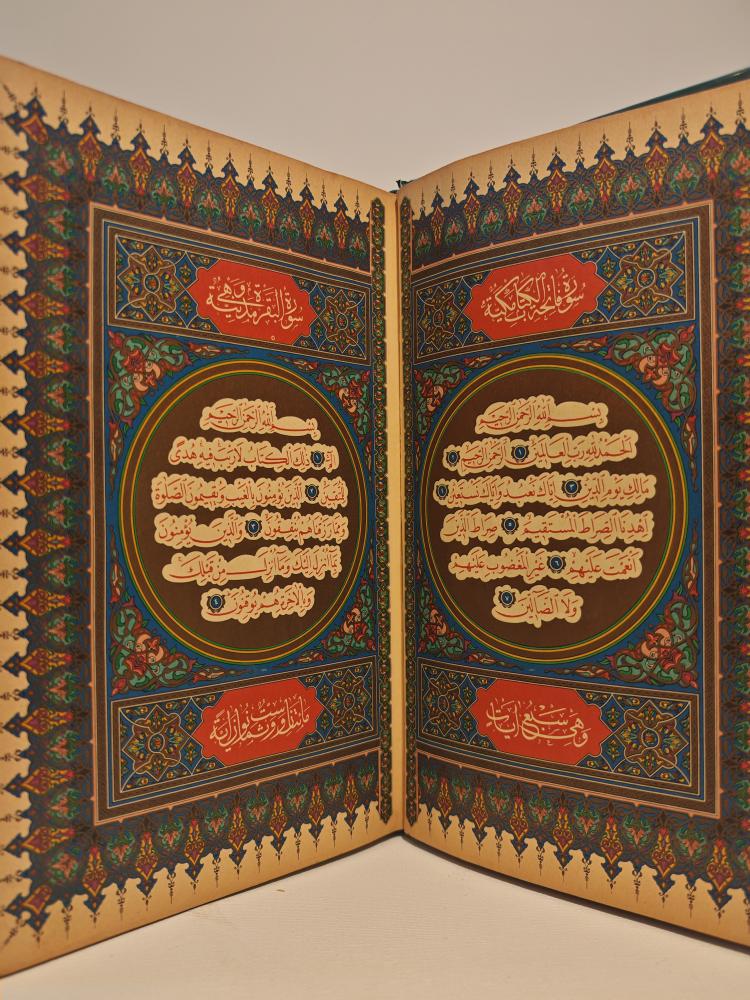 سورة فاتحة الكتاب مكية
بسم الله الرحمن الرحيم
الحمد لله رب العالمين ١ الرحمن الرحيم
مالك يوم الدين ٣ إياك نعبد وإياك نستعين
اهدنا الصراط المستقيم ٥ صراط الذين
أنعمت عليهم ٦ غير المغضوب عليهم
ولا الضالين ٧
وهي سبع آيات
سورة البقرة مدنية وهي
بسم الله الرحمن الرحيم
الم ١ ذلك الكتاب لا ريب فيه هدى
للمتقين ٢ الذين يؤمنون بالغيب ويقيمون الصلوة
ومما رزقناهم ينفقون ٣ والذين يؤمنون
بما أنزل إليك وما أنزل من قبلك
وبالآخرة هم يوقنون ٤
مائتان وست وثمانون آية